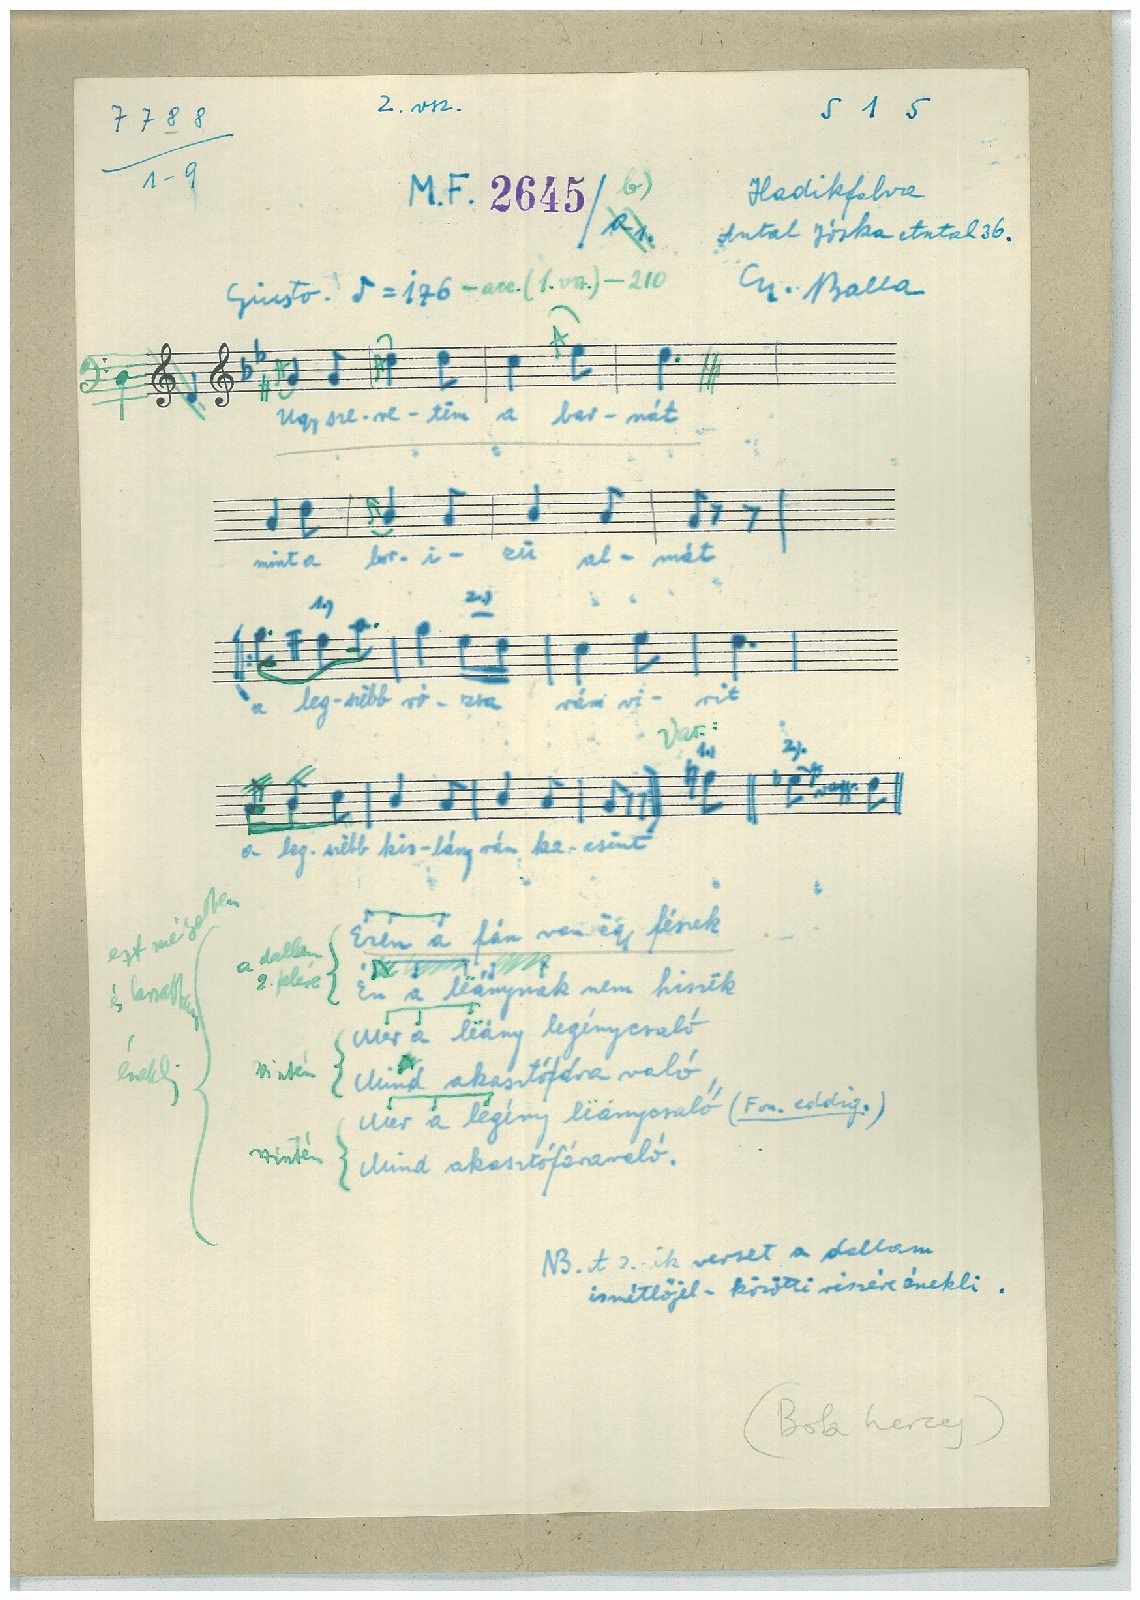 7 7 8 8
1-9
2. vsz.
5 1 5
M.F. 2645/ b)
a 1.
Hadikfalva
Antal Jóska Antal 36.
Gy. Balla
Giusto. ♪ = 176 - acc. (1. vsz.) - 210
Ugy sze-re-tëm a bar-nát
mint a bor-i-zü al-mát
1.) 2.)
a leg-szëbb ró-zsa rám vi-rit
Var.:
1.) 2.)
vagy
a leg-szëbb kis-lány rám ka-csint
ezt mégëtten
és
énekli
a dallam
2. felére
Ezën a fán van ëgy fészek
Én a lëánynak nem hiszëk
szintén
Mer a lëány legénycsaló
Mind akasztófára való,
szintén
Mer a legény lëánycsaló (Fon. eddig.)
Mind akasztófáravaló.
NB. A 2.-ik verset a dallam
ismétlőjel-közötti részére énekli.
(Bob herceg)